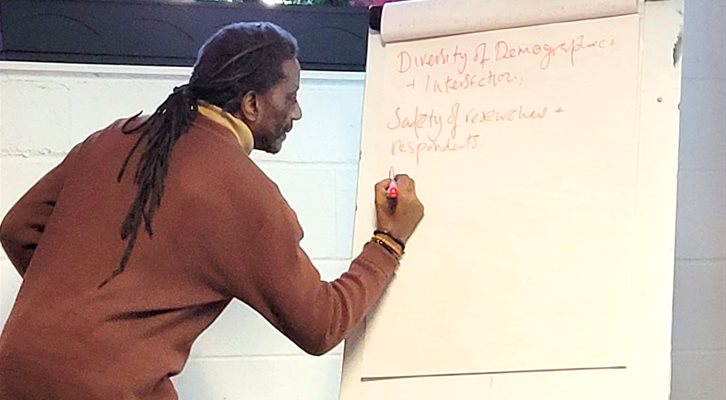 Diversity of Demographics
+ Intersection,
Safety of researchers +
respondents